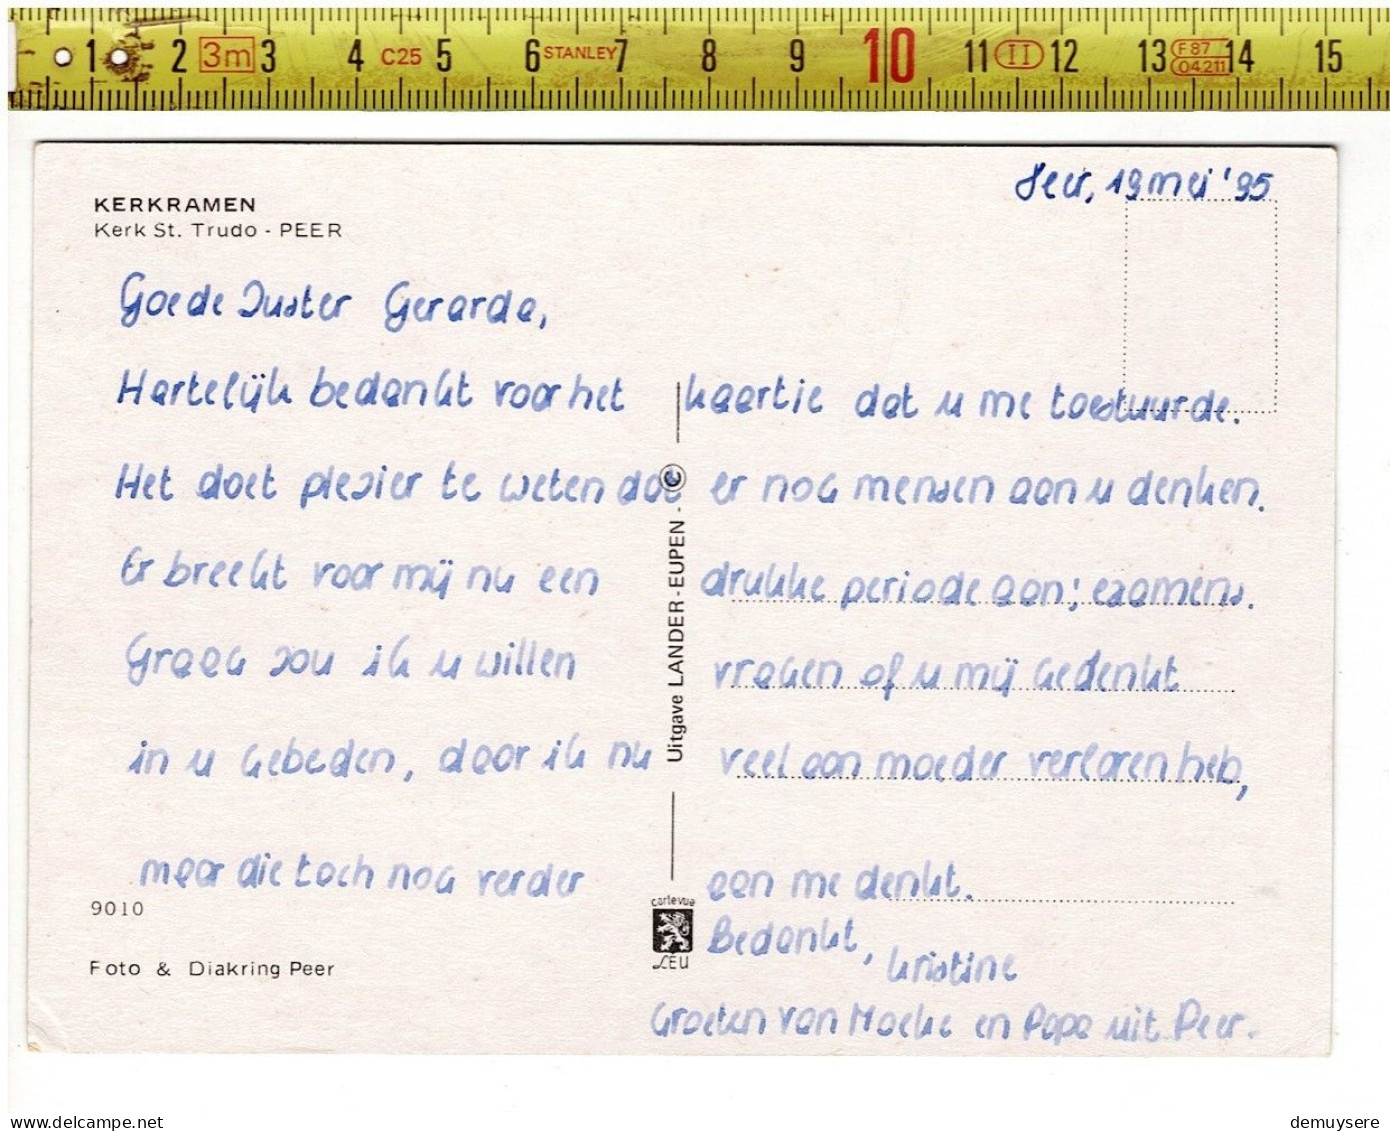 1 2 3m 3 4 C25 5 6 STANLEY 7 8 9 10 11 II 12 13 F 87 04.211 14 15
Peer, 19 mei '95
KERKRAMEN
Kerk St. Trudo - PEER
Goede Zuster Gerarda,
Hartelijk bedankt voor het kaartje dat u me toestuurde.
Het doet plezier te weten dat er nog mensen aan u denken.
Er breekt voor mij nu een drukke periode aan; examens.
Graag zou ik u willen vragen of u mij gedenkt
in u gebeden, daar ik nu veel aan moeder verloren heb,
maar die toch nog verder aan me denkt.
Bedankt,
Kristine
Groeten van Moeke en Papa uit Peer.
Uitgave LANDER-EUPEN - ©
cartevue
LEU
9010
Foto & Diakring Peer
delcampe.net
demuysere